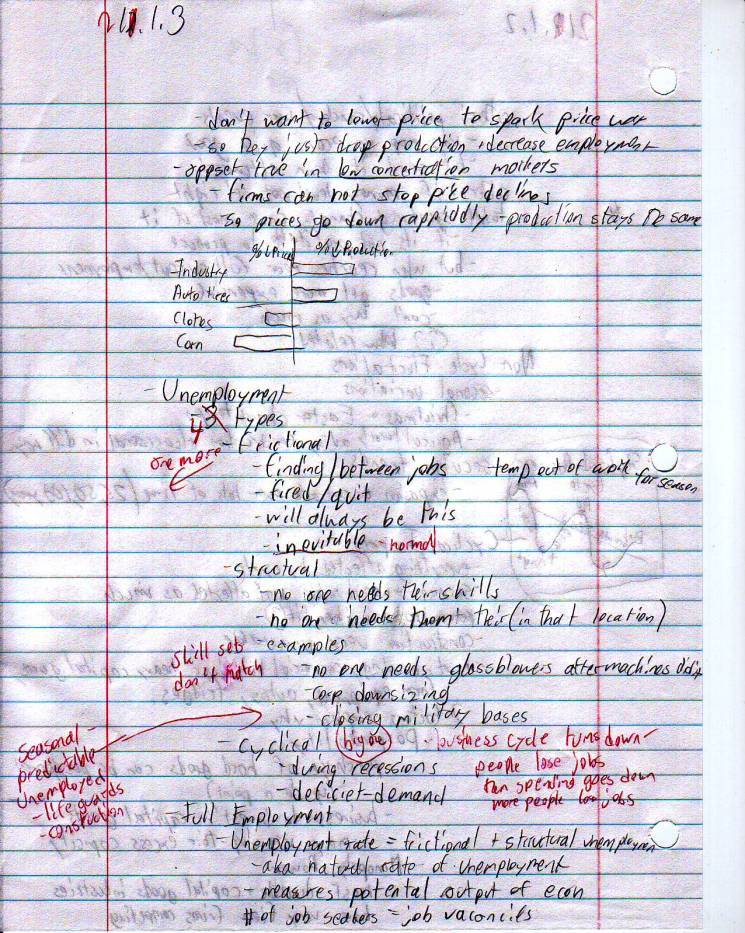 211.1.3
- don't want to lower price to spark price war
- so they just drop production + decrease employment
- oppset true in low concertration markets
- firms can not stop price declines
- so prices go down rappiddly - production stays the same
%↓Price %↓Production
- Industry
Auto tires
Clothes
Corn
- Unemployment
- 3 types
4
one more
- Frictional
- finding/between jobs temp out of work for season
- fired/quit
- will always be this
- inevitable - normal
- structual
- no one needs their skills
- no one needs them their (in that location)
- examples
skill sets
don't match
- no one needs glassblowers after machines did it
- corp downsizing
- closing military bases
- cyclical (big one) - business cycle turns down -
people lose jobs
then spending goes down
more people lose jobs
- during recessions
- deficiet-demand
seasonal -
predictable
unemployed
- life guards
- construction
- Full Employment
- Unemployment rate = frictional + structual unemployment
- aka natural rate of unemployment
- measures potental output of econ
# of job seekers = job vacancies